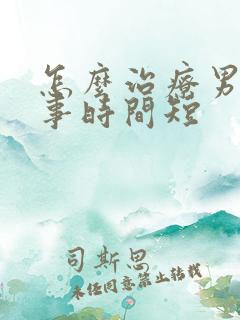 怎麼治療男
事時間短
司斯思
未任同意禁止转载